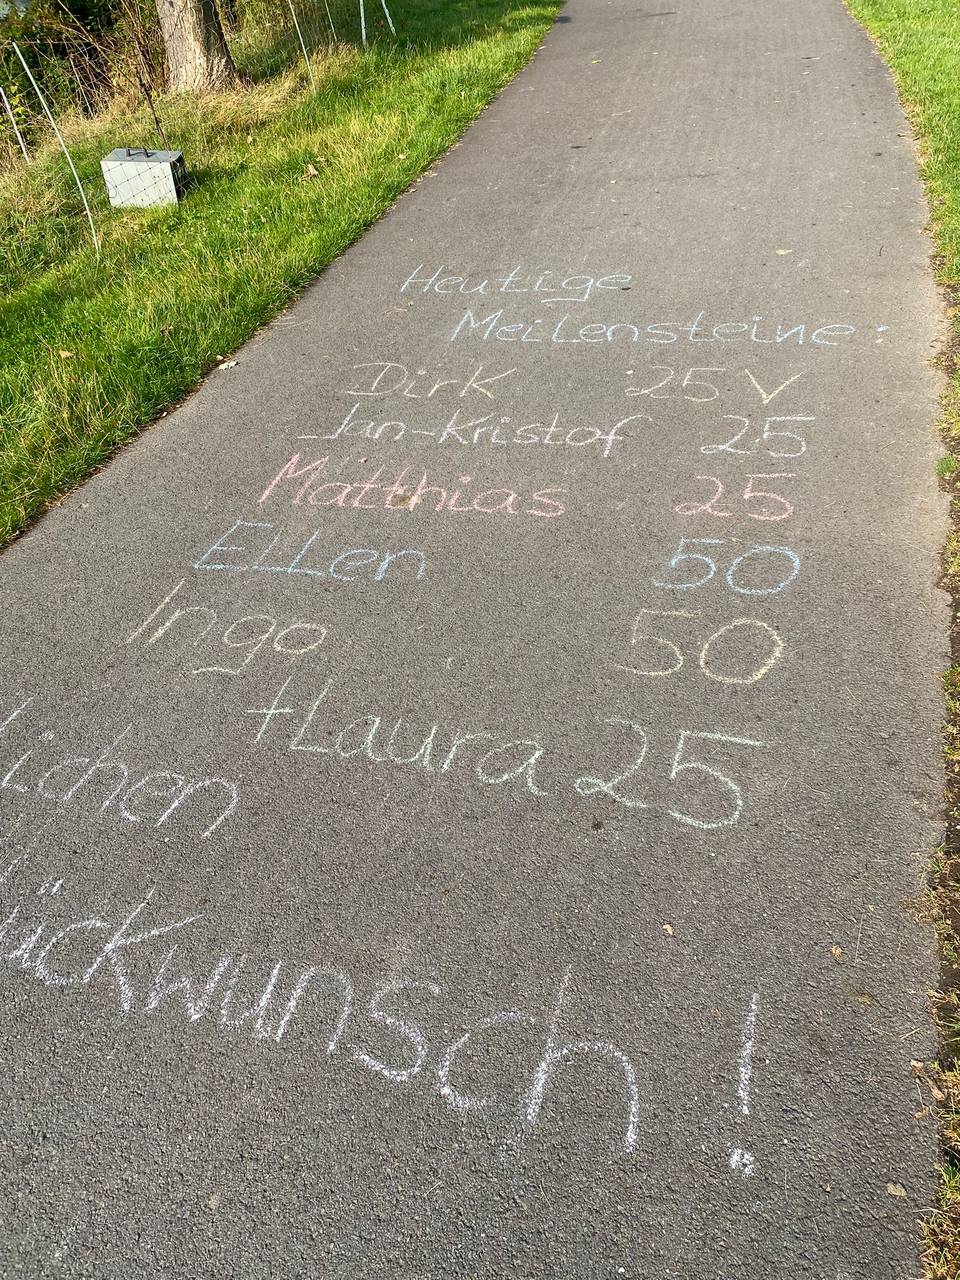 Heutige
Meilensteine:
Dirk 25 V
Jan-Kristof 25
Matthias 25
Ellen 50
Ingo 50
+Laura 25
lichen
ückwunsch!